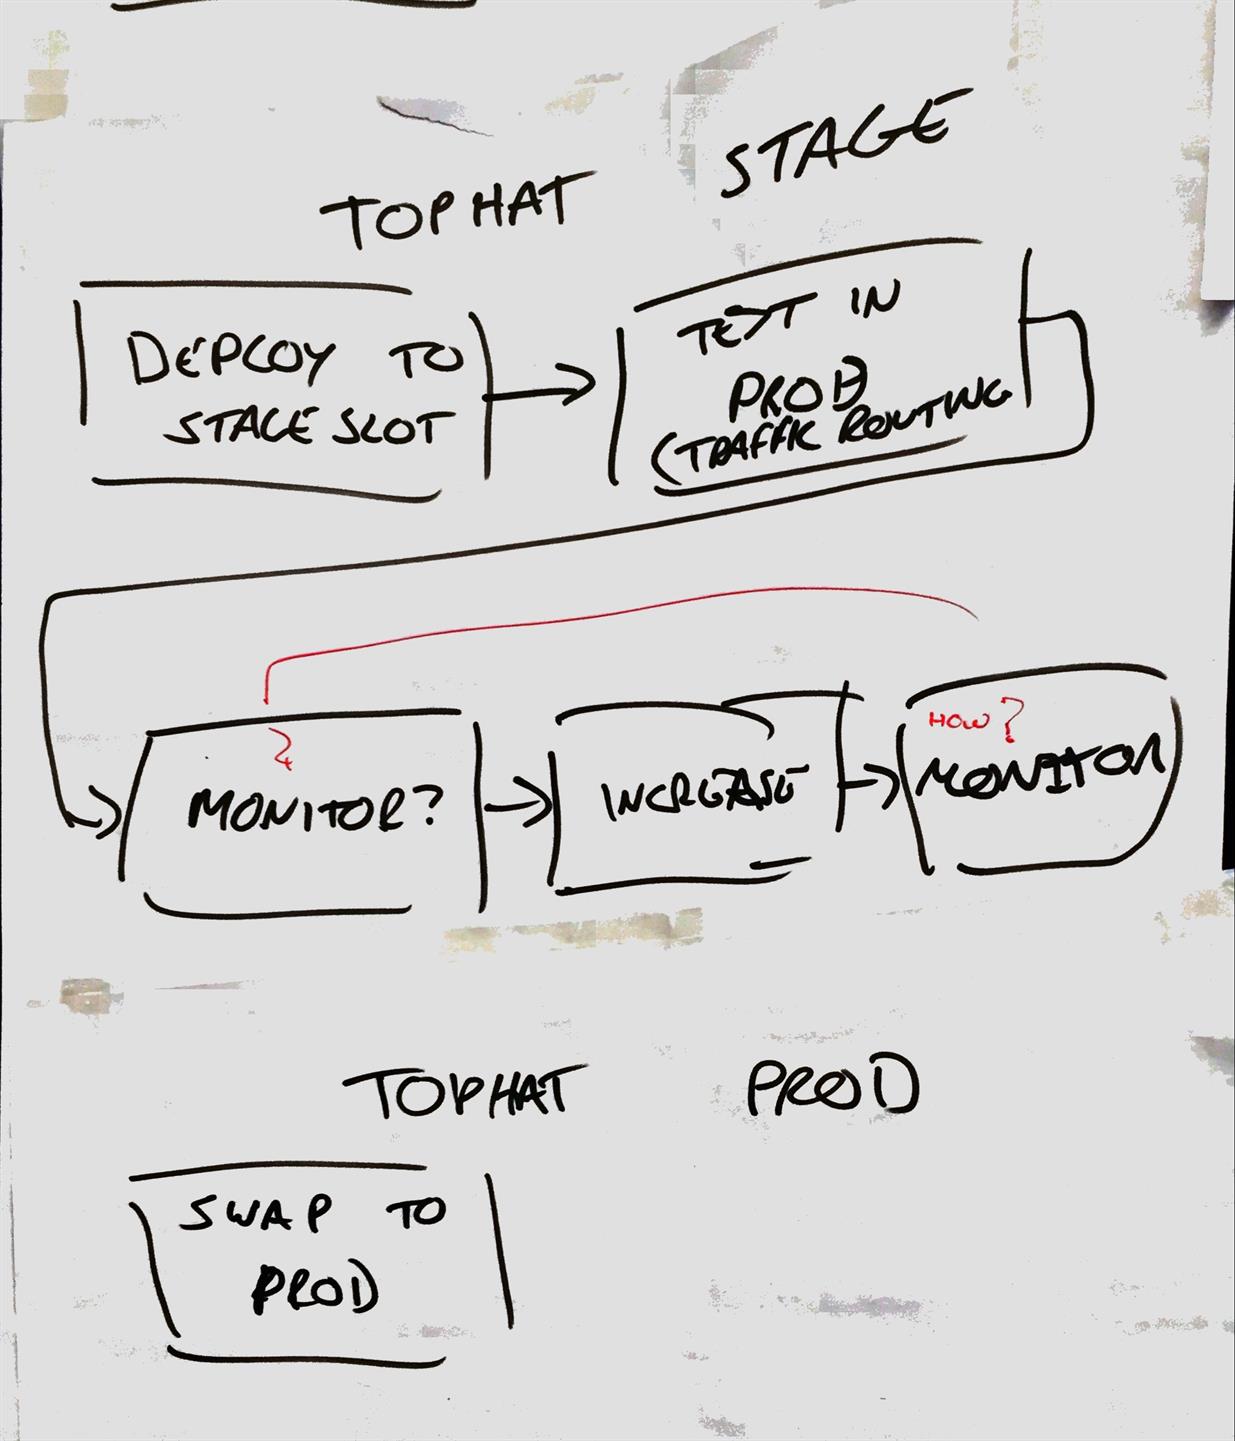 TOPHAT STAGE
DEPLOY TO
STAGE SLOT
TEST IN
PROD
(TRAFFIC ROUTING
MONITOR?
INCREASE
HOW?
MONITOR
TOPHAT PROD
SWAP TO
PROD